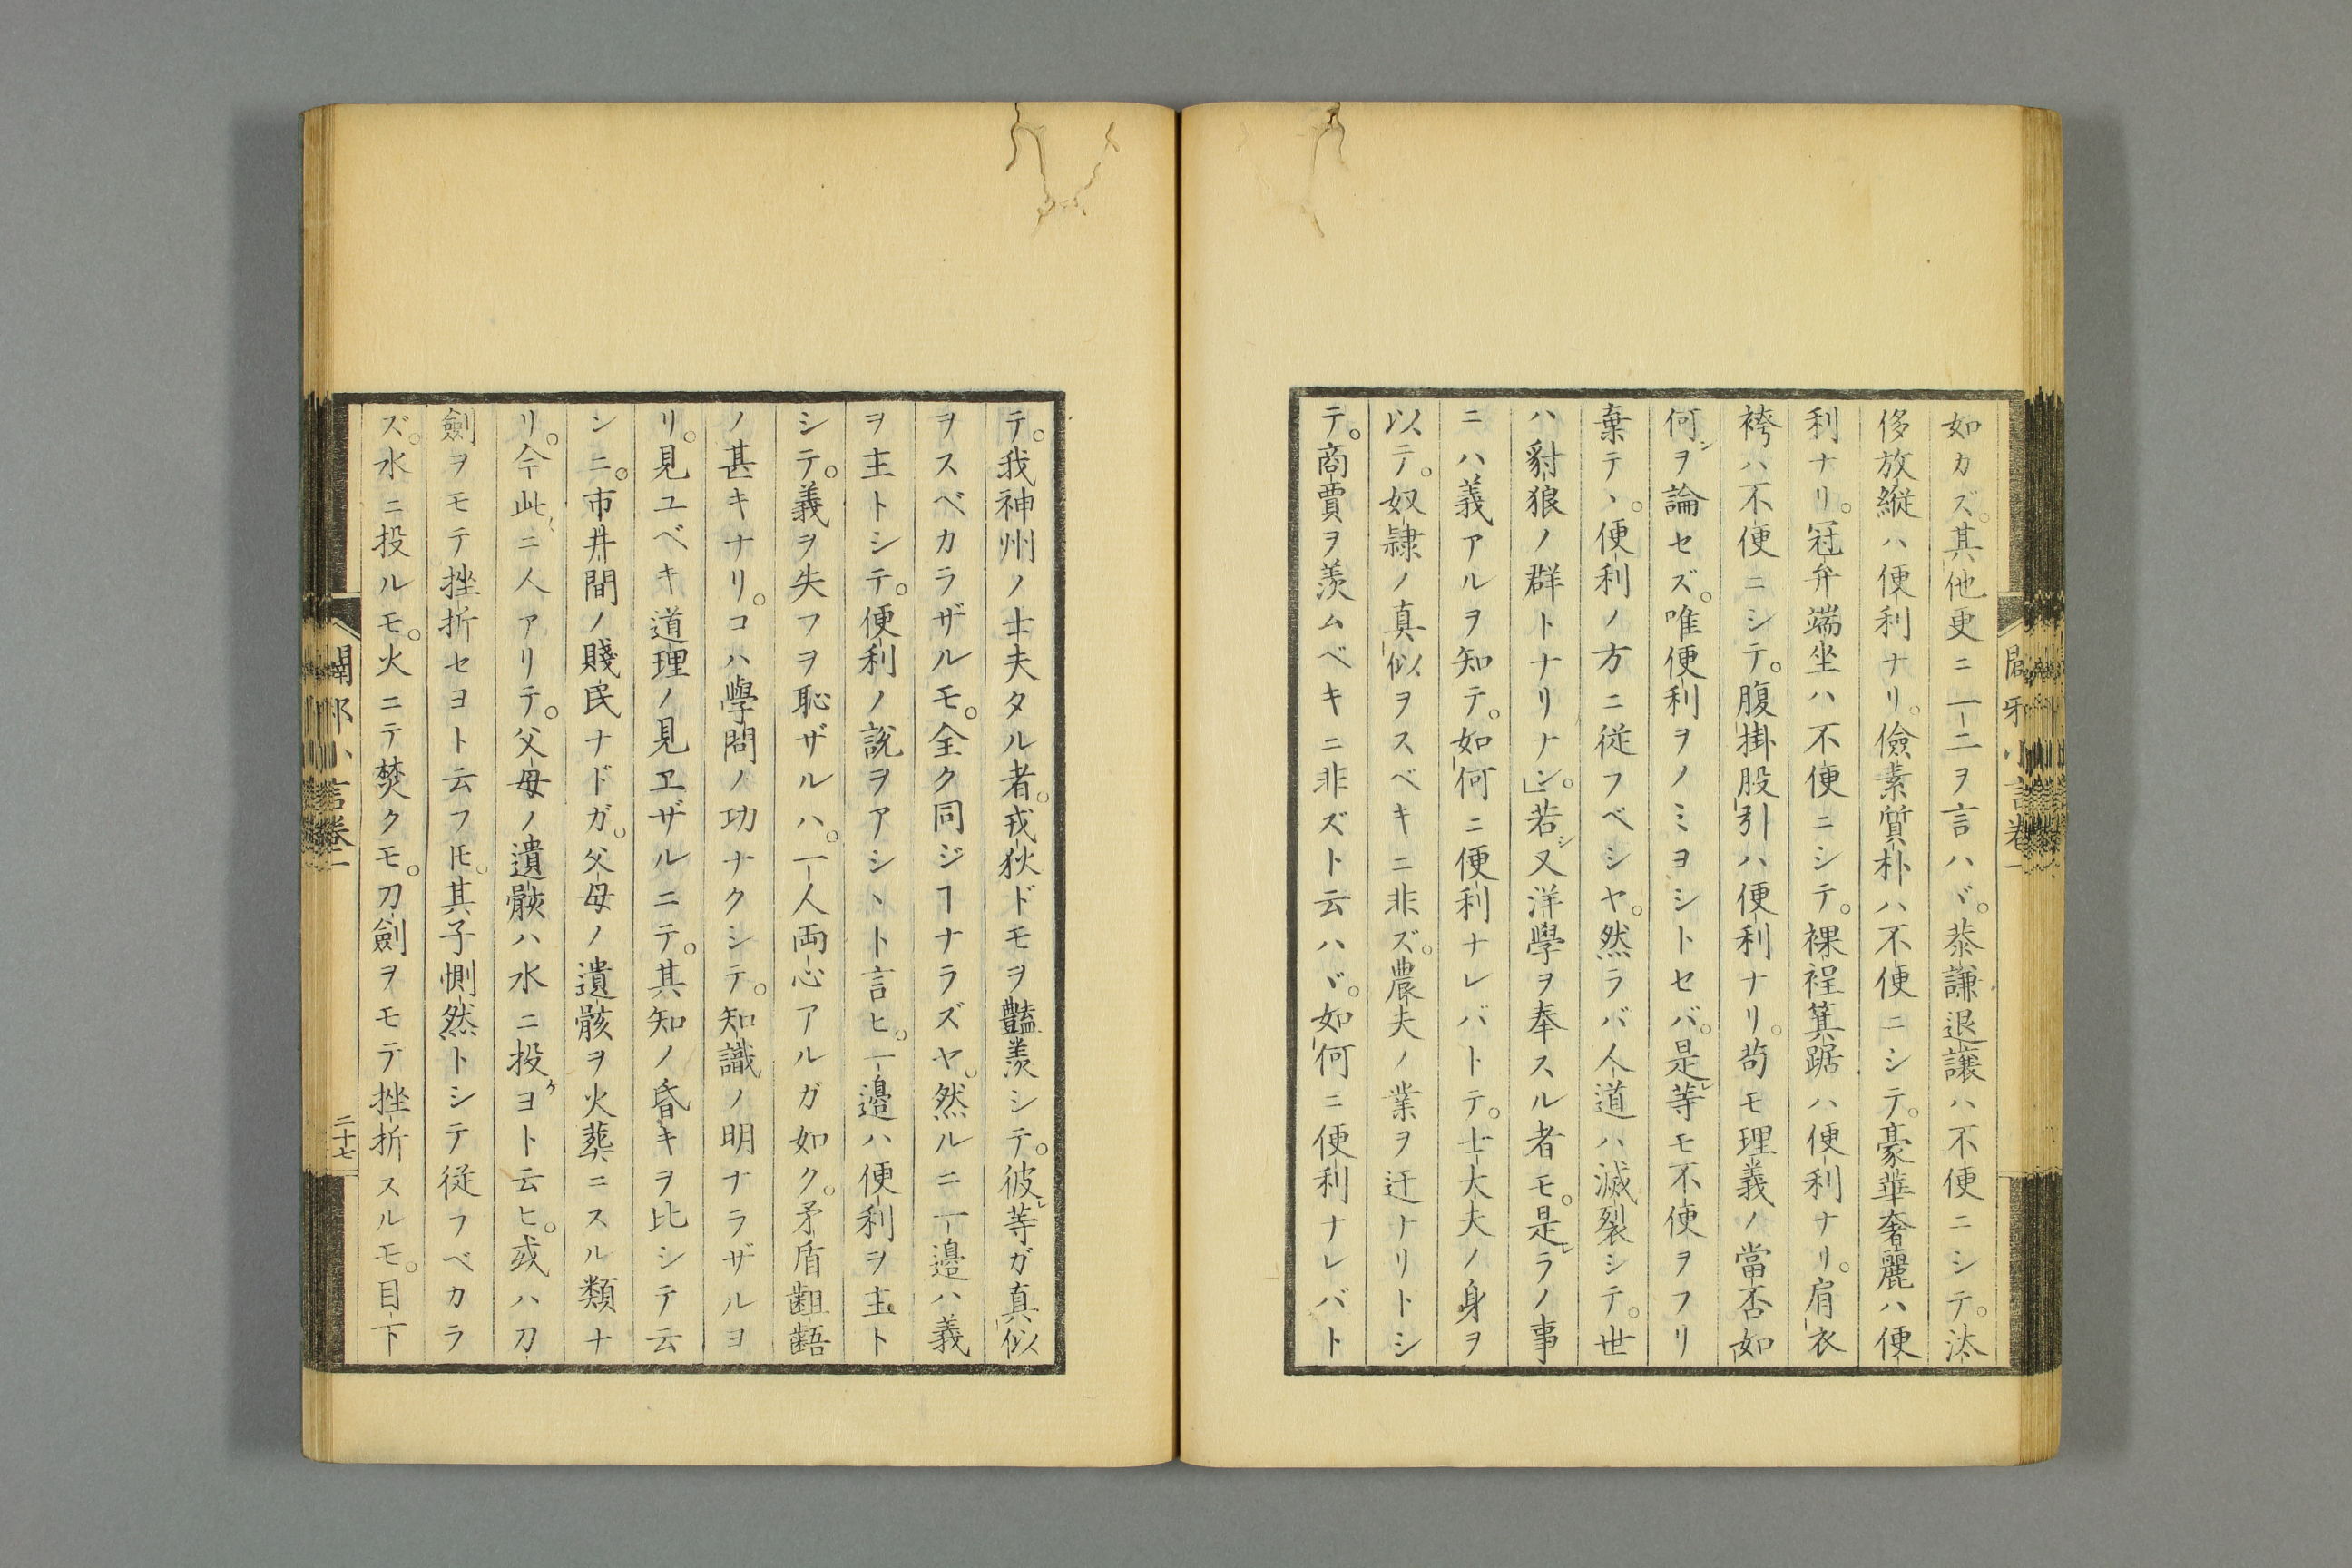 如カズ。其他更ニ一二ヲ言ハヾ。恭謙退讓ハ不便ニシテ。汰
侈放縱ハ便利ナリ。儉素質朴ハ不便ニシテ。豪華奢麗ハ便
利ナリ。冠弁端坐ハ不便ニシテ。裸裎箕踞ハ便利ナリ。肩衣
袴ハ不便ニシテ。腹掛股引ハ便利ナリ。苟モ理義ノ當否如
何シヲ論セズ。唯便利ヲノミヨシトセバ。是レ等モ不便ヲフリ
棄テヽ。便利ノ方ニ従フベシヤ。然ラバ人道ハ滅裂シテ。世
ハ豺狼ノ群トナリナン。」若シ又洋學ヲ奉スル者モ。是レラノ事
ニハ義アルヲ知テ。如何ニ便利ナレバトテ。士大夫ノ身ヲ
以テ。奴隷ノ真似ヲスベキニ非ズ。農夫ノ業ヲ迂ナリトシ
テ。商賈ヲ羨ムベキニ非ズト云ハヾ。如何ニ便利ナレバト
テ。我神州ノ士夫タル者。戎狄ドモヲ豔羨シテ。彼レ等ガ真似
ヲスベカラザルモ。全ク同ジヿナラズヤ。然ルニ一邉ハ義
ヲ主トシテ。便利ノ說ヲアシヽト言ヒ。一邉ハ便利ヲ主ト
シテ。義ヲ失フヲ恥ザルハ。一人両心アルガ如ク。矛盾齟齬
ノ甚キナリ。コハ學問ノ功ナクシテ。知識ノ明ナラザルヨ
リ。見ユベキ道理ノ見ヱザルニテ。其知ノ昏キヲ比シテ云
シニ。市井間ノ賤民ナドガ。父母ノ遺骸ヲ火葬ニスル類ナ
リ。今此ニ人アリテ。父母ノ遺骸ハ水ニ投ケヨト云ヒ。或ハ刀
劍ヲモテ挫折セヨト云フ𪜈。其子惻然トシテ従フベカラ
ズ。水ニ投ルモ。火ニテ焚クモ。刀劍ヲモテ挫折スルモ。目下
闢邪小言卷二
二十七